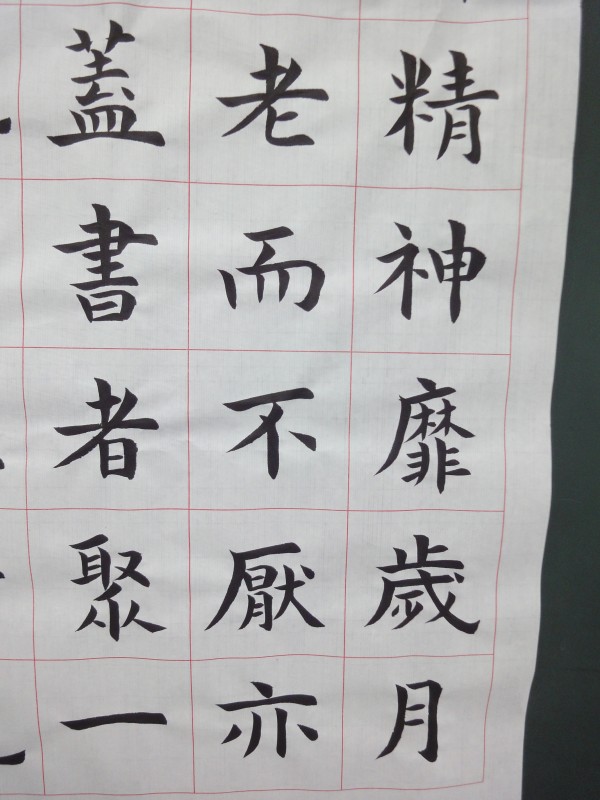 精神靡歲月
老而不厭亦
蓋書者聚一